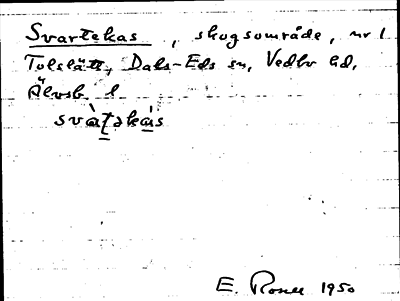 Svartekas, skogsområde, nr 1
Tolslätt, Dals-Eds sn, Vedbo hd,
Älvsb. l
svàṭəkás
E. Rosell 1950